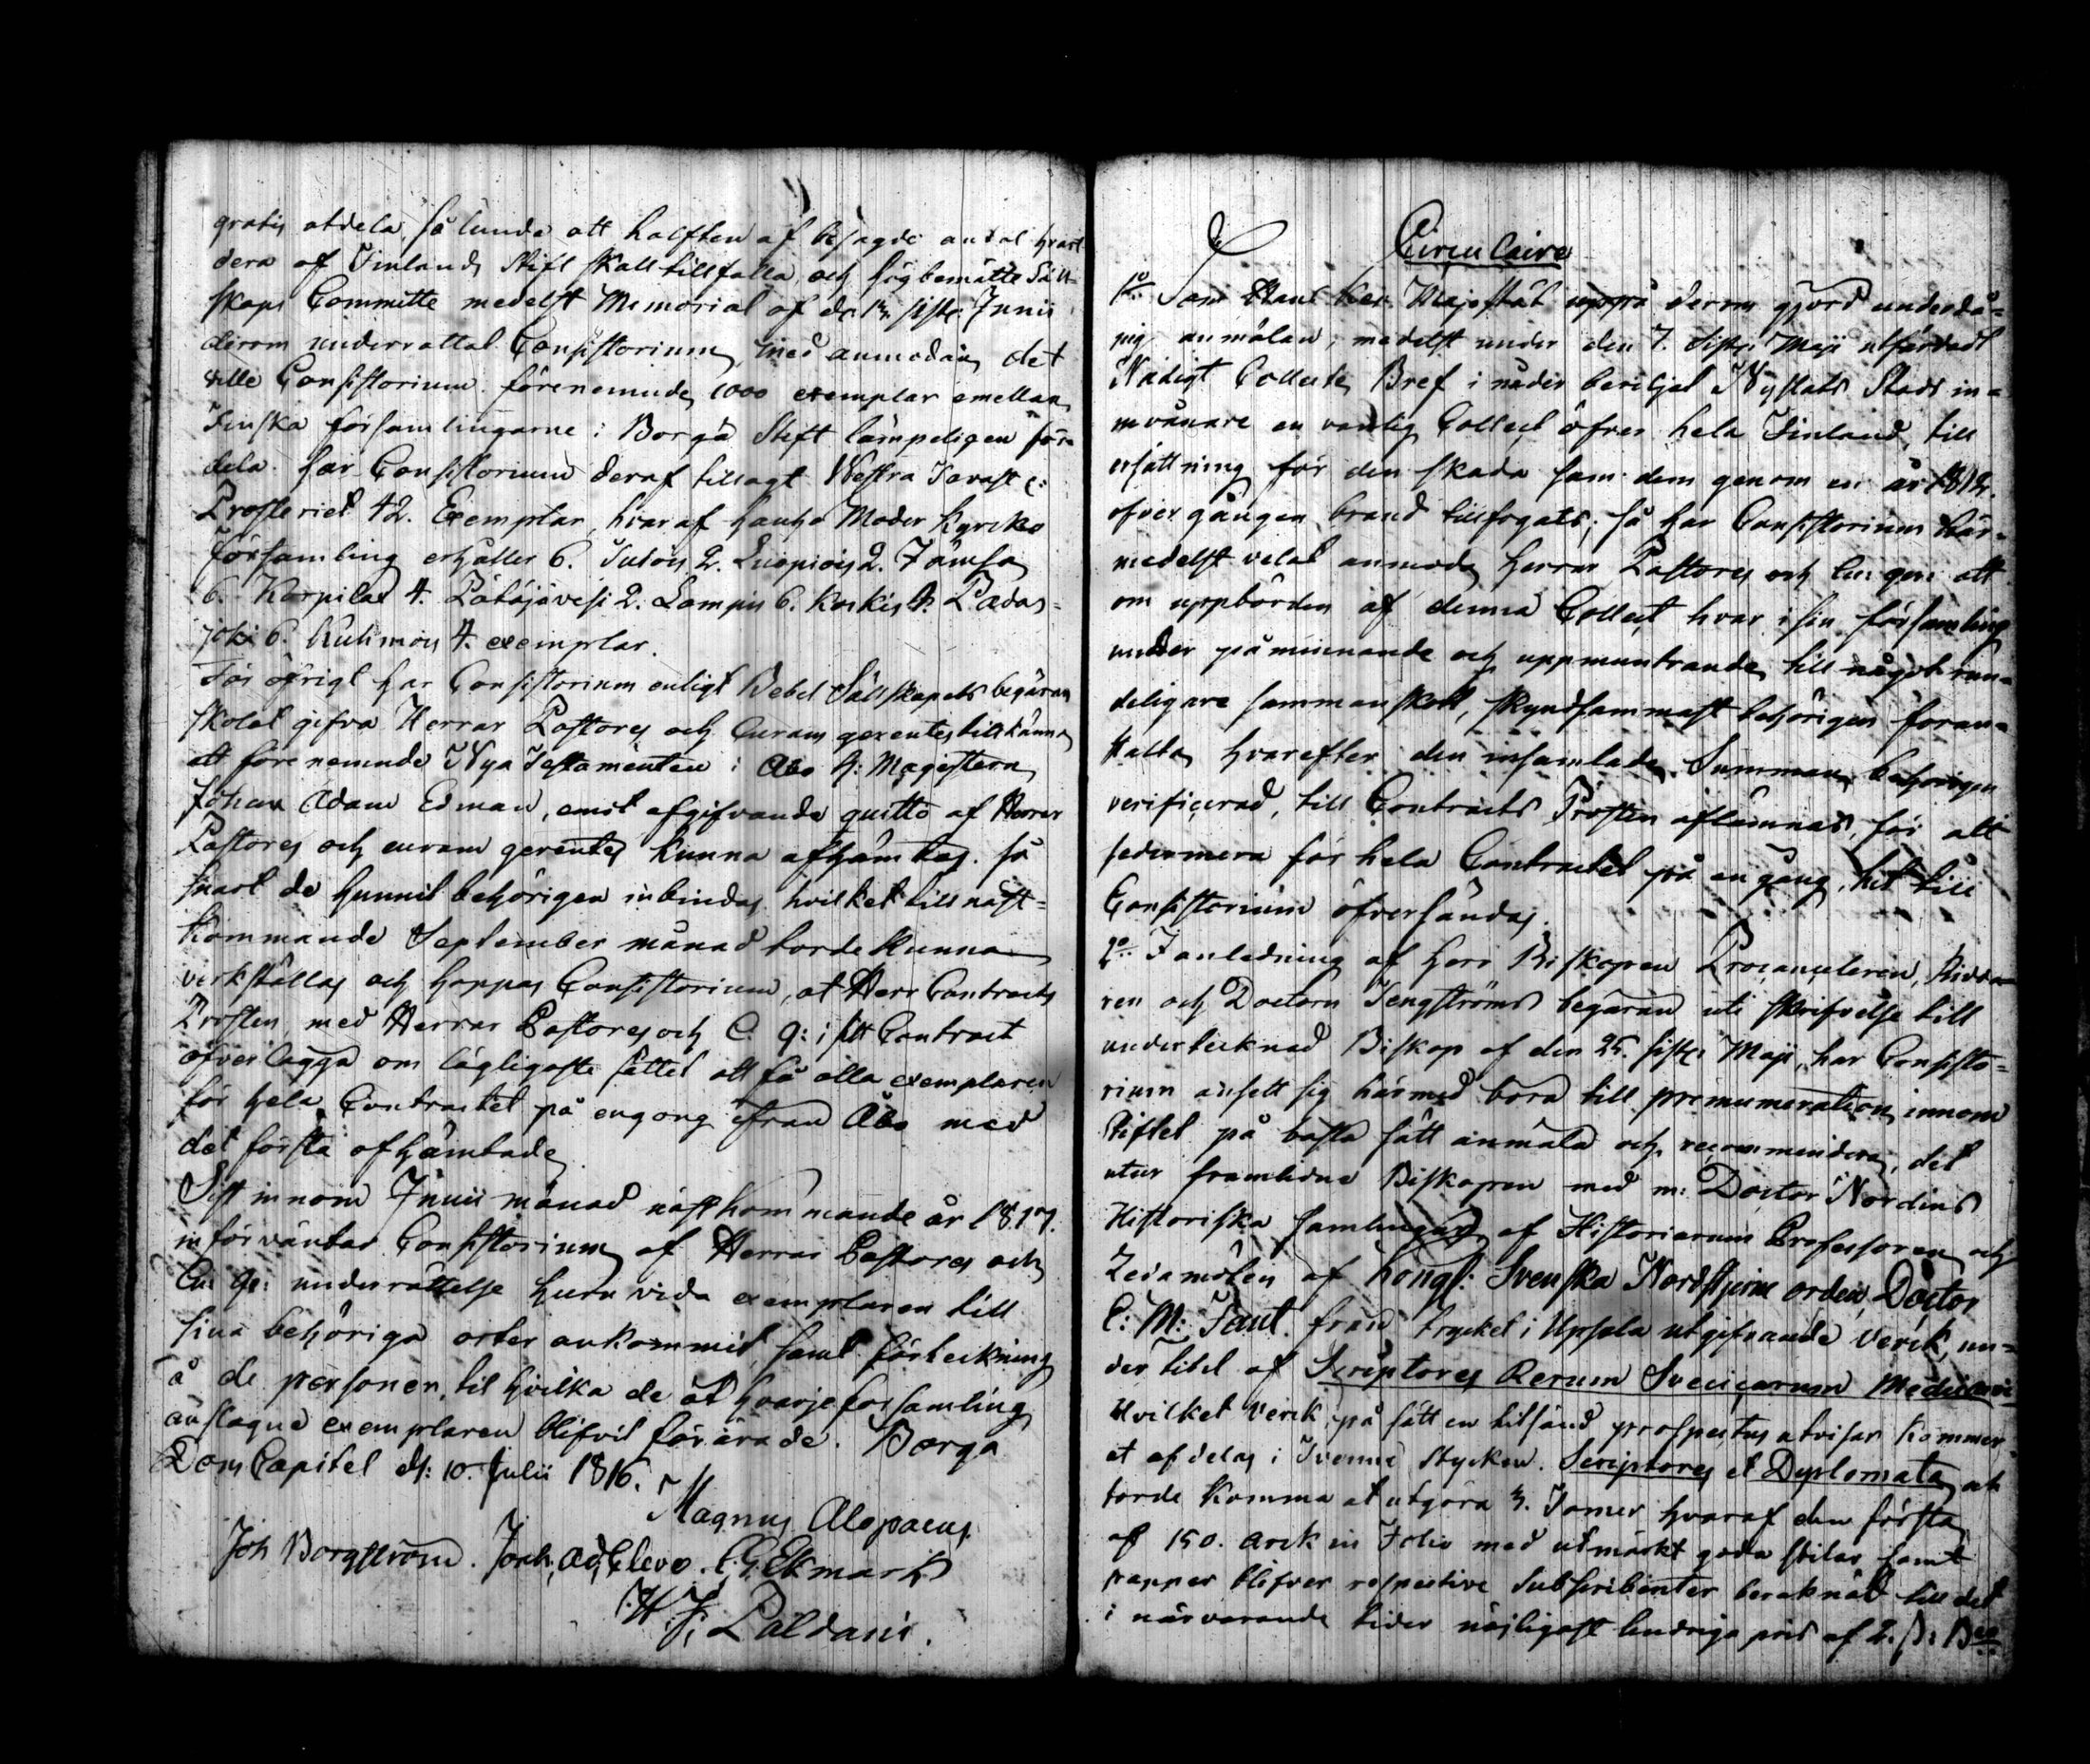 gratis utdela, så lunda att halften af besagde antal hvart
dera af Finlands Stift skall tillfalla, och högbemätte Säll-
skaps Committe medelst Memorial af d. 13. sistl: Junii
derom underrattat Consistorium, med anmodan, det
ville Consistorium förenemnde 1000 exemplar emellan
Finska församlingarne i Borgå Stift lämpeligen för-
dela har Consistorium deraf tillsagt Westra Tavast e:
Prosteriet 42. Exemplar, hvaraf Hauho Moder Kyrcko
församling erhåller 6. Tulois 2. Luopiois 2. Jämsa
6. Korpilax 4. Pätäjävesi 2. Lampis 6. Koskis Padas-
joki 6. Kuhmois 4. exemplar.
För öfrigt har Consistorium enligt Bebel Sällskapets begäran
skolat gifva Herrar Pastores och Curam gerentes tillkänna,
att förenemnde Nya Testamenten i Åbo h: Magistern
Johan Adam Edman, emot afgifvande quitto af Herrar
Pastores och curam gerentes kunna afhämtas. så
snart de hunnit behörigen inbindas, hvilket till näst-
kommande September månad torde kunna
verkställas och hoppas Consistorium, at Herr Contracts
Prosten med Herrar Pastores och C. g: i sitt Contract
öfverlägga om lägligaste sättet att få alla exemplaren
för hela Contractet på engong ifran Åbo med
det första afhämtade
Sist innom Junii månad nästkommande år 1817.
införväntar Consistorium af Herrar Pastores och
Cu: ge: underrättelse huru vida exemplaren till
sina behöriga orter ankommit, samt förteckning
å de personer, til hvilka de åt hvarje församling
anslagne exemplaren blifvit förärade. Borgå
Dom Capitel d: 10. Julii 1816.
Magnus Alopaeus.
Joh Borgström. Joh, Ad, Cleve. C. G. Ekmark
H. J. Paldani.
Circulaire
1:o Som Hans Kejs. Majestät uppå derom gjord underdå-
nig anmälan, medelst under den 7. Sistl: Maji utfärdadt
Nådigt Collecte Bref i nåder beviljat Nystads Stads in-
nvånare en vanlig Collect öfver hela Finland, till
ersättning för den skada som dem genom en år 1812.
öfvergången brand tillfogats; så har Consistorium här-
medelst velat anmoda Herrar Pastores och Cu: gere: att
om uppbörden af denna Collect hvar i sin församling
under påminnande och uppmuntrande till något ran-
deligare sammanskott, skyndsammast behörigen foran-
stalta, hvarefter den insamlade Summan behörigen
verificerad, till Contracts Prosten aflämnas, för att
sedermera för hela Contractet på en gång hit till
Consistorium öfversändas.
2:o I anledning af Herr Biskopen Procancelleren, Ridda-
ren och Doctorn Tengströms begäran uti skrifvelse till
undertecknad Biskop af den 25. sistl: Maji, har Consisto-
rium ansett sig härmed bora till prenumeration innom
Stiftet på basta sätt anmäla och recommendera, det
utur framledne Biskopen med m: Doctor Nordins
Historiska samlingar af Historiarum Professoren och
Ledamoten af Kongl: Svenska Nordstjerne orden, Doctor
E: M: Fant från trycket i Uppsala utgifvande Verck, un-
der titel af Scriptores Rerum Svecicarum Medii ævi
Hvilket Verck, på sätt en bilsänd prospectus utvisar kommer
at afdelas i Tvenne Stycken. Scriptores et Dyplomata, och
torde komma at utgöra 3. Tomer hvaraf den första
af 150. Arck in Folio med utmärkt goda stilar samt
papper blifver respective Subscribenter beräknadt till det
i närvarande tider möjligast lindriga pris af 2. ß: B:co